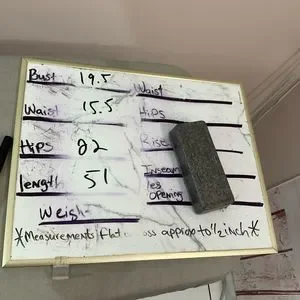 Bust 19.5 Waist
Waist 15.5 Hips
Hips 22 Rise
length 51 Inseam
Leg
opening
Weight
*Measurements flat across approx to 1/2 inch*